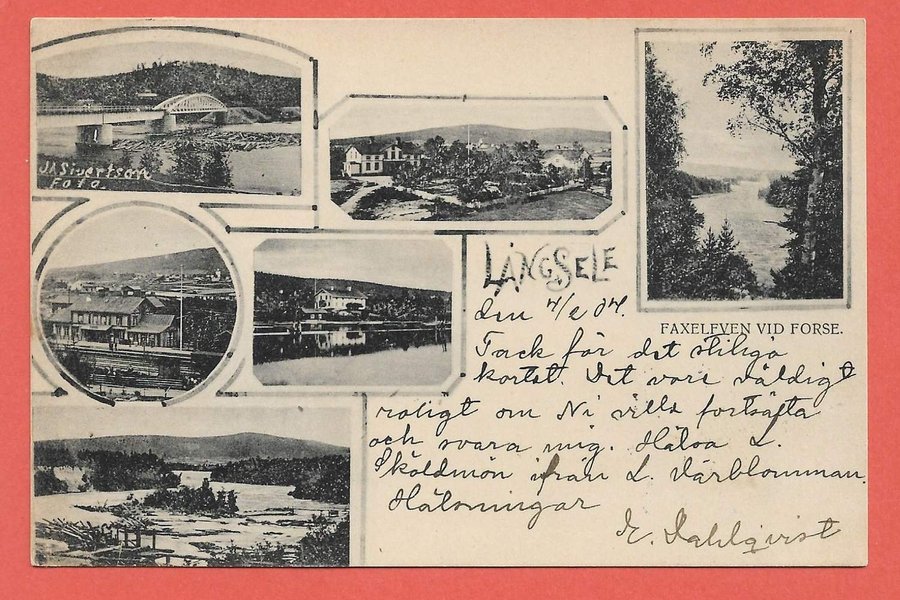 J.A. Sivertson
Foto.
LÅNGSELE
FAXELFVEN VID FORSE.
den 4/2 04.
Tack för det stiliga
kortet. Det vore väldigt
roligt om Ni ville fortsätta
och svara mig. Hälsa L.
Sköldmön ifrån L. Vårblomman.
Hälsningar
E. Dahlqvist